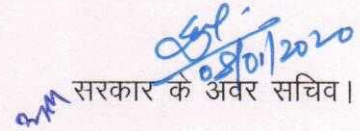 08/01/2020
सरकार के अवर सचिव।